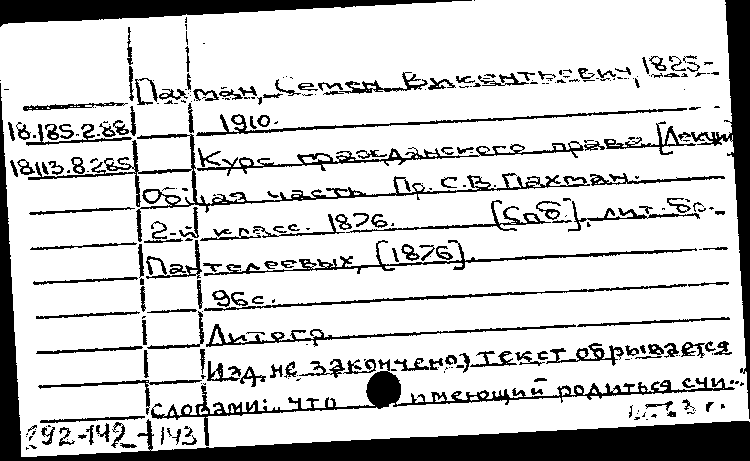 Пахман, Семен Викентьевич, 1825-
18.185.2.88 1910.
18.113.8.285 Курс гражданского права. [Лекции
Общая часть Пр. С.В. Пахман.
2-й класс. 1876. [Спб.], лит. бр.
Пантелеевых, [1876].
96с.
Литогр.
Изд. не закончено; текст обрывается
словами: „что имеющий родиться счи..."
292-142-143